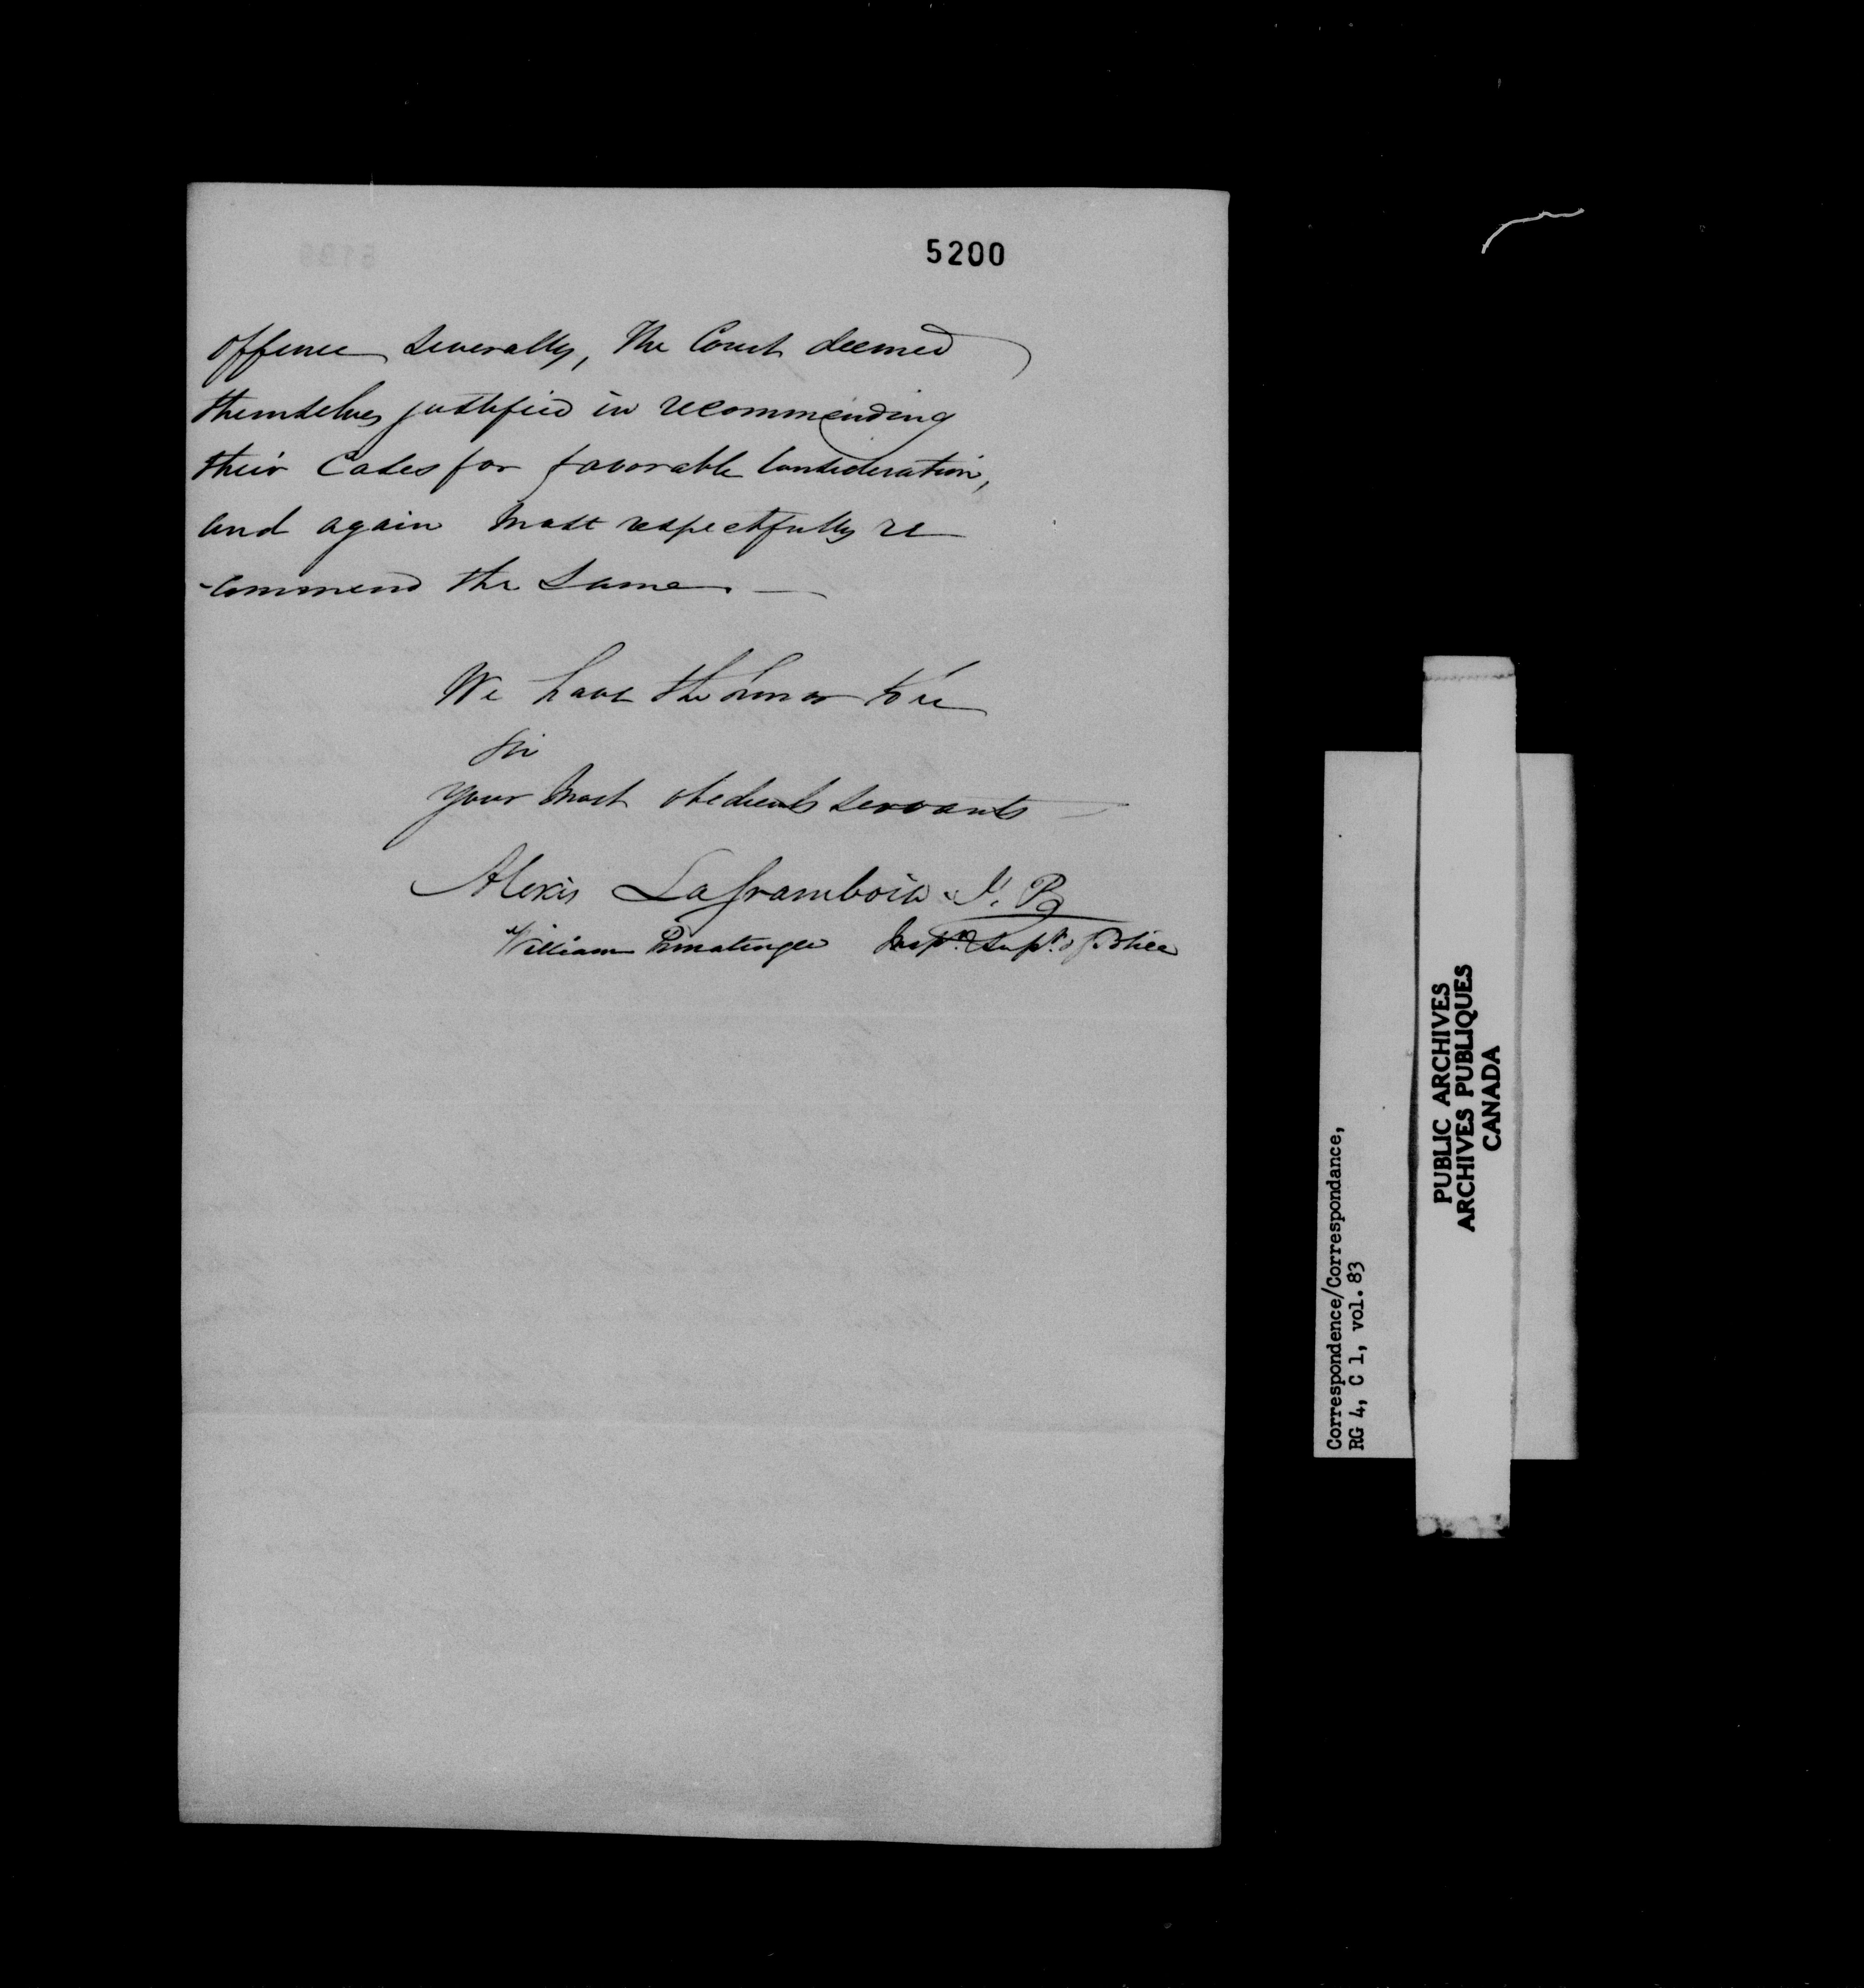 5200
offence severally, The Court deemed
themselves justified in recommending
their Cases for favorable Consideration,
and again most respectfully re
-commend the same —
We have the honor to be
Sir
Your most obedient servants
Alexis Laframboise J. P.
William Ermatinger Insp.r & Sup.t of Police
Correspondence/Correspondance,
RG 4, C 1, vol. 83
PUBLIC ARCHIVES
ARCHIVES PUBLIQUES
CANADA